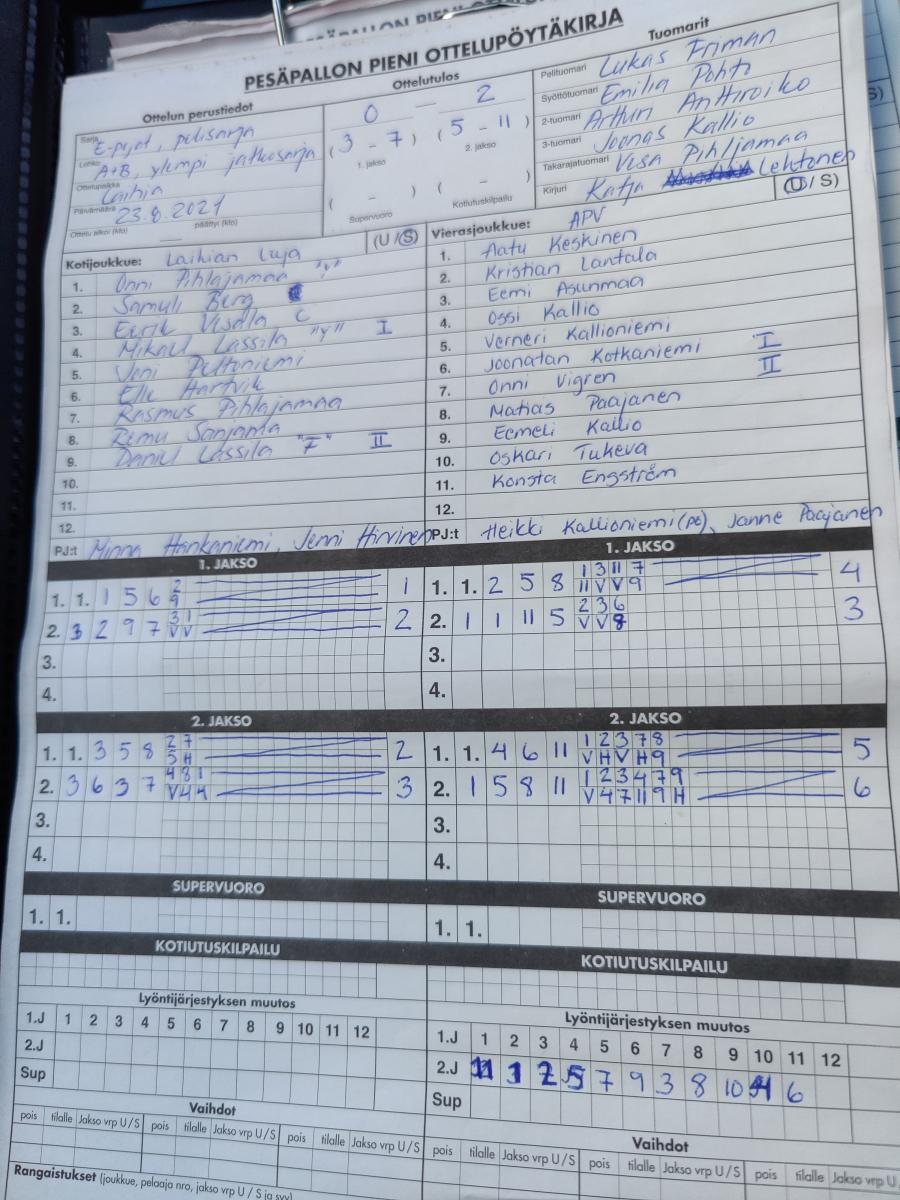 PESÄPALLON PIENI OTTELUPÖYTÄKIRJA
Ottelun perustiedot
Sarja E-pojat, pelisarja
Lohko A+B, ylempi jatkosarja
Ottelupaikka Laihia
Päivämäärä 23.8.2021
Ottelu alkoi (klo) päättyi (klo)
Ottelutulos
0 - 2
(3 - 7) (5 - 11)
1. jakso 2. jakso
( - ) ( - )
Supervuoro Kotiutuskilpailu
Tuomarit
Pelituomari Lukas Friman
Syöttötuomari Emilia Pohto
2-tuomari Artturi Anttiroiko
3-tuomari Joonas Kallio
Takarajatuomari Vesa Pihljamaa
Kirjuri Katja Lehtonen
Kotijoukkue: Laihian Luja (U/S)
1. Onni Pihlajamaa "V"
2. Samuli Berg
3. Eerik Visala C
4. Mikael Lassila "Y" I
5. Veni Peltoniemi
6. Elle Hartvik
7. Rasmus Pihlajamaa
8. Remu Sanjanta
9. Daniel Lassila "7" II
10.
11.
12.
PJ:t Minna Hankaniemi, Jenni Hirvinen
Vierasjoukkue: APV (U/S)
1. Aatu Keskinen
2. Kristian Lantala
3. Eemi Asunmaa
4. Ossi Kallio
5. Verneri Kallioniemi
6. Joonatan Kotkaniemi I
7. Onni Vigren II
8. Matias Paajanen
9. Eemeli Kallio
10. Oskari Tukeva
11. Konsta Engström
12.
PJ:t Heikki Kallioniemi (pe), Janne Paajanen
1. JAKSO
1. 1. 1 5 6 2 1
9
2. 3 2 9 7 3 1 2
V V
3.
4.
1. JAKSO
1. 1. 2 5 8 1 3 11 7 4
11 V V 9
2. 1 1 11 5 2 3 6 3
V V 8
3.
4.
2. JAKSO
1. 1. 3 5 8 2 7 2
5 H
2. 3 6 3 7 4 8 1 3
V 4 H
3.
4.
2. JAKSO
1. 1. 4 6 11 1 2 3 7 8 5
V H V H 9
2. 1 5 8 11 1 2 3 4 7 9 6
V 4 7 11 9 H
3.
4.
SUPERVUORO
1. 1.
SUPERVUORO
1. 1.
KOTIUTUSKILPAILU
KOTIUTUSKILPAILU
Lyöntijärjestyksen muutos
1.J 1 2 3 4 5 6 7 8 9 10 11 12
2.J
Sup
Lyöntijärjestyksen muutos
1.J 1 2 3 4 5 6 7 8 9 10 11 12
2.J 11 1 2 5 7 9 3 8 10 4 6
Sup
Vaihdot
pois tilalle Jakso vrp U/S pois tilalle Jakso vrp U/S pois tilalle Jakso vrp U/S
Vaihdot
pois tilalle Jakso vrp U/S pois tilalle Jakso vrp U/S pois tilalle Jakso vrp U
Rangaistukset (joukkue, pelaaja nro, jakso vrp U / S ja syy)